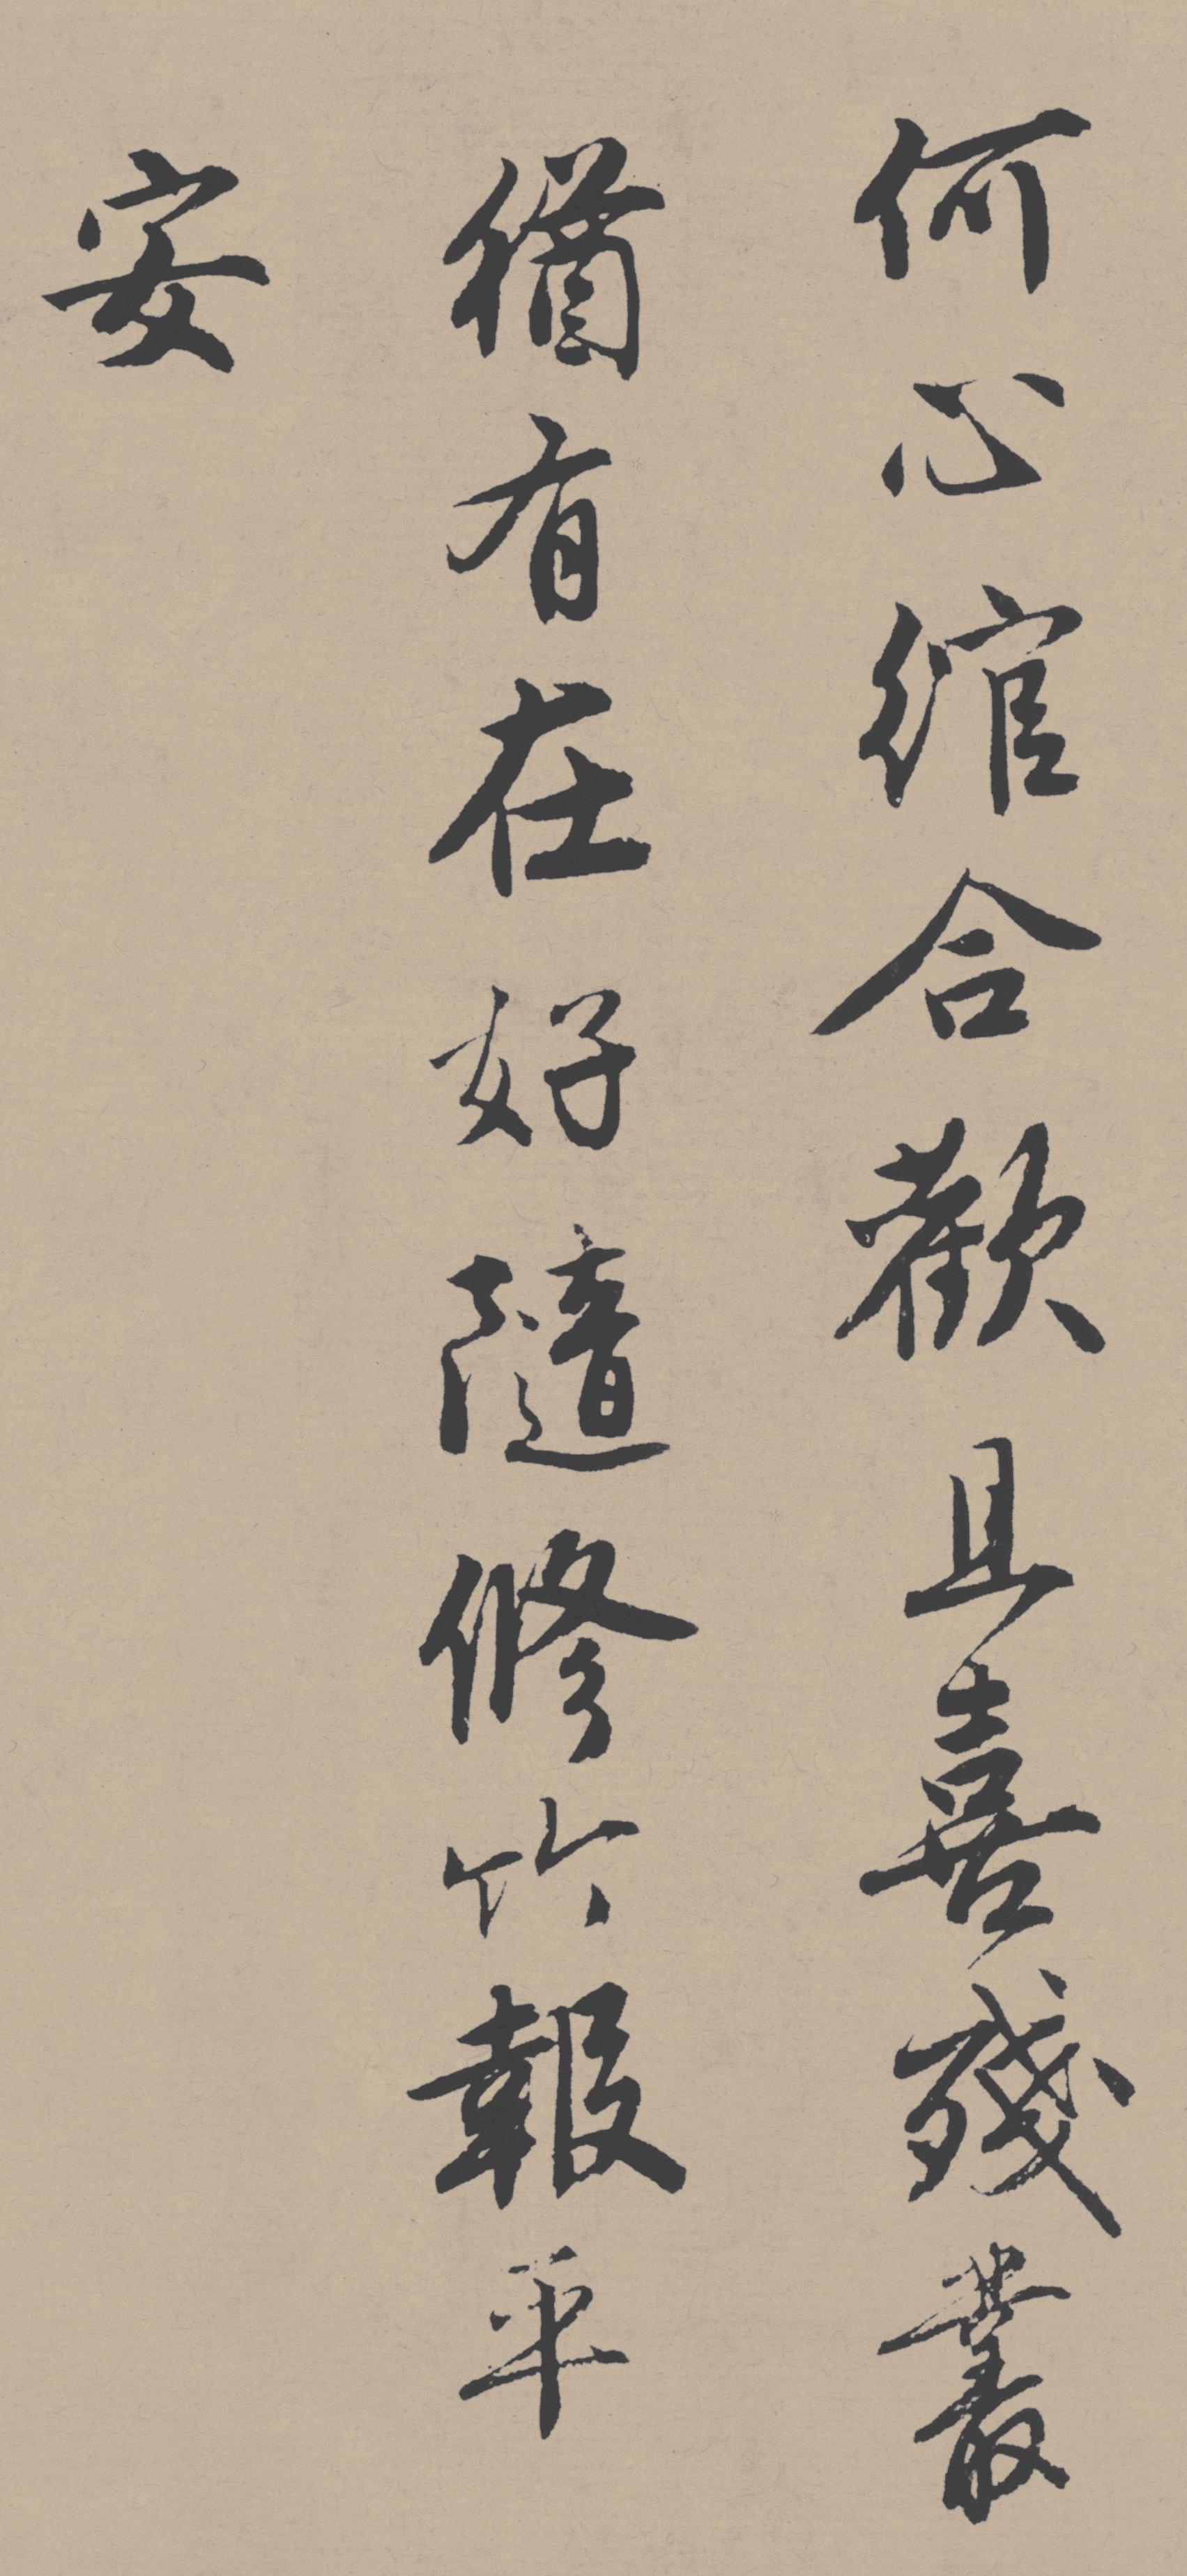 何心綰合歡且喜殘叢
猶有在好隨修竹報平
安